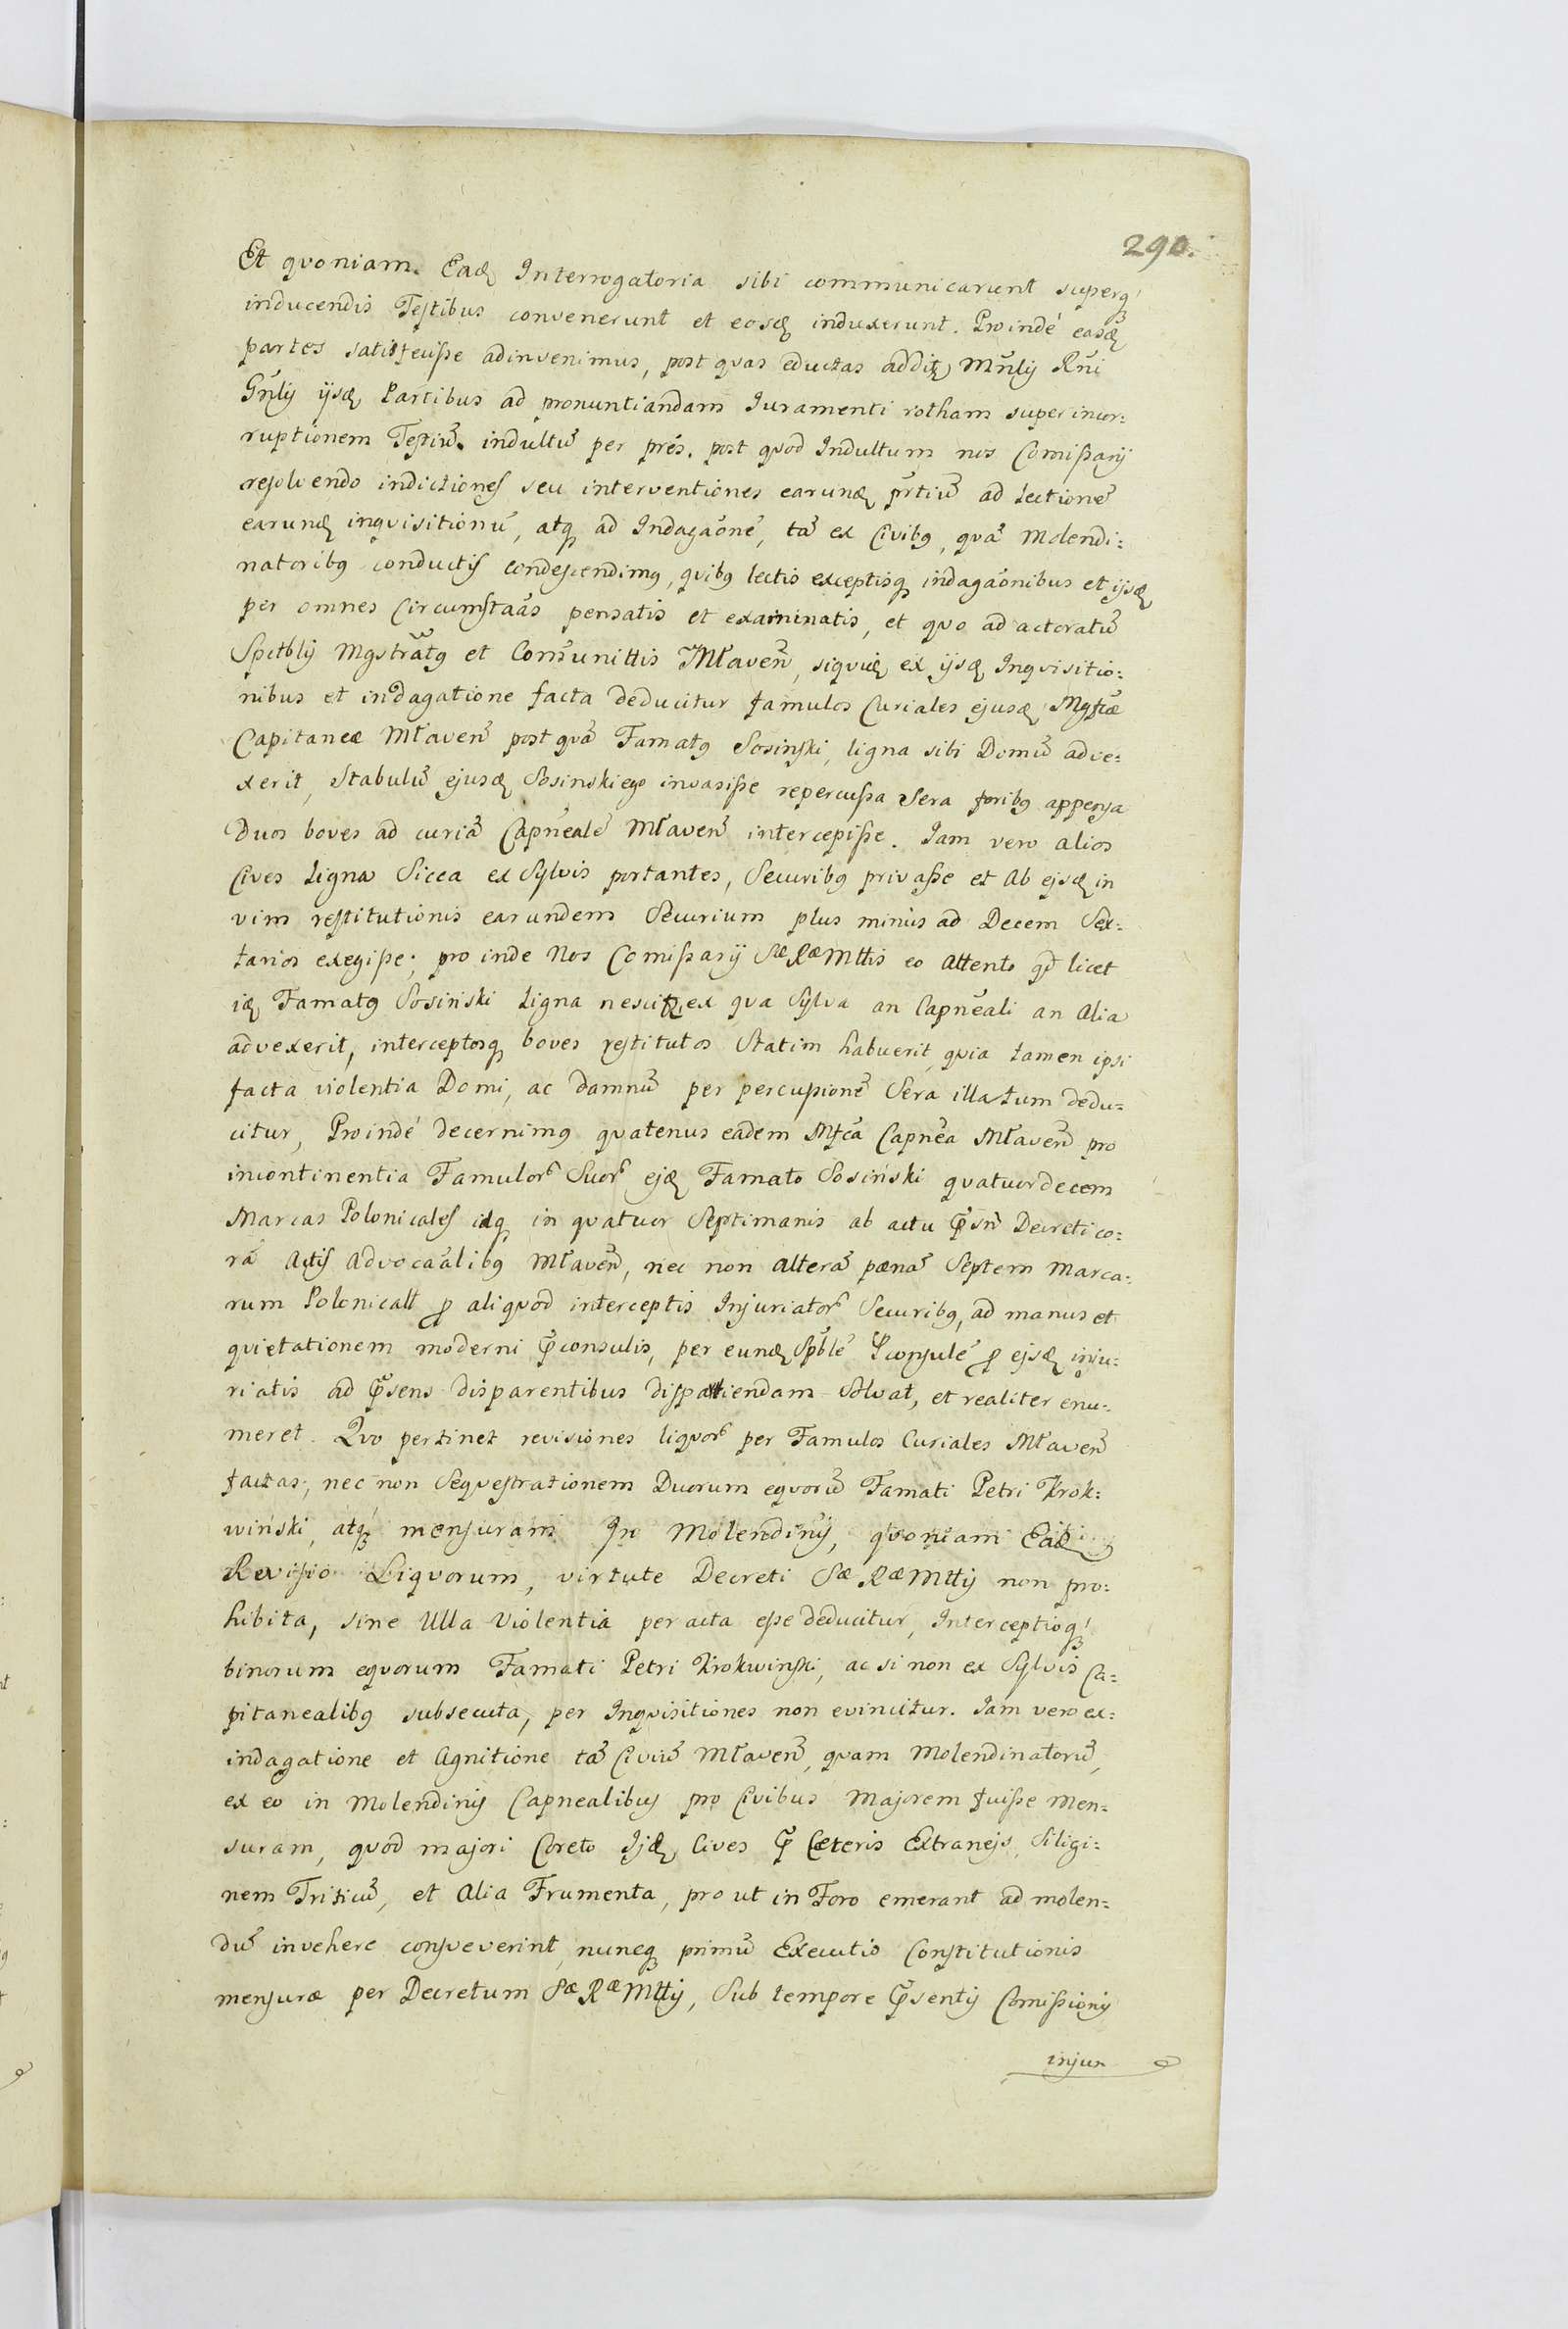 290.
Et quoniam Eadȩ Interrogatoria sibi communicarunt superqȝ
inducendis Testibus convenerunt et eosdȩ induxerunt. Proindé easdȩ
partes satisfecisse adinvenimus, post quas eductas additȩ Mn̄lij Rn̄i
Gn̄lij ijsdȩ Partibus ad pronuntiandam Iuramenti rotham super incor:
ruptionem Testiū indultū per prés. post quod Indultum nos Comissarij
resolvendo indictiones seu interventiones earundȩ pr̄tiū ad Lectionē
earundȩ inquisitionū, atqȝ ad Indagāonē, tā ex Civibꝰ, quā Molendi:
natoribꝰ conductis condescendimꝰ, quibꝰ lectis exceptisqȝ indagāonibus et ijsdȩ
per omnes Circumstaās pensatis et examinatis, et quo ad actoratū
Spctblij Mgstrātꝰ et Comūnittis Mław̄en̄, siquidȩ ex ijsdȩ Inquisitio:
nibus et indagatione facta deducitur famulos Curiales ejusdȩ Mgficæ
Capitaneæ Mławen̄ postquā Famatꝰ Sosinski, ligna sibi Domū adve:
xerit, Stabulū ejusdȩ Sosinskiego invasisse repercussa Sera foribꝰ appensa
Duos boves ad curiā Capnealē Mławen̄ intercepisse. Iam vero alios
Cives Ligna Sicca ex Sylvis portantes, Securibꝰ privasse et Ab ejsdȩ in
vim restitutionis earundem Securium plus minus ad Decem Sex:
tarios exegisse; pro inde Nos Comissarij Sæ Ræ Mttis eo Attento qd licet
idȩ Famatꝰ Sosiński Ligna nescitȩ ex qua Sylva an Capnēali an Alia
advexerit, interceptosqȝ boves restitutos Statim habuerit, quia tamen ipsi
facta violentia Domi, ac damnū per percussionē Sera illatum dedu:
citur, Proindé decernimꝰ quatenus eadem Mfca Capnēa Mławen̄ pro
incontinentia Famulor̄ Suor̄ ejdȩ Famato Sosiński quatuordecem
Marcas Polonicales idqȝ in quatuor Septimanis ab actu p̄sn̄ Decreti co:
rā Actis Advocaālibꝰ Mławen̄, nec non alterā pænā Septem Marca:
rum Polonicalt ꝓ aliquod interceptis Injuriator̄ Securibꝰ, ad manus et
quietationem moderni p̄consulis, per eundȩ Spblē p̄consulē ꝓ ejsdȩ inju:
riatis ad p̄sens disparentibus dispartiendam Solvat, et realiter enu:
meret. Qvo pertinet revisiones liquor̄ per Famulos Curiales Mławen̄
factas, nec non Sequestrationem Duorum equorū Famati Petri Krok:
wiński, atqȝ mensuram In Molendinis, quoniam Eadȩ
Revisio Liquorum, virtute Decreti Sæ Ræ Mttis non pro:
hibita, sine Ulla Violentia peracta esse deducitur, Interceptioqȝ
binorum equorum Famati Petri Krokwinski, ac si non ex Sylvis Ca:
pitanealibꝰ subsecuta, per Inquisitiones non evincitur. Iam vero ex:
indagatione et Agnitione tā Civiū Mławen̄, quam Molendinatorū,
ex eo in Molendinis Capnealibus pro Civibus Majorem fuisse men:
suram, quod majori Coreto Ijdȩ Cives p̄ Cæteris Extranejs Siligi:
nem Triticū, et Alia Frumenta, pro ut in Foro emerant ad molen:
dū invehere consveverint, nuncqȝ primū Executio Constitutionis
mensuræ per Decretum Sæ Ræ Mttis, Sub tempore p̄sentis Comissionis
injun